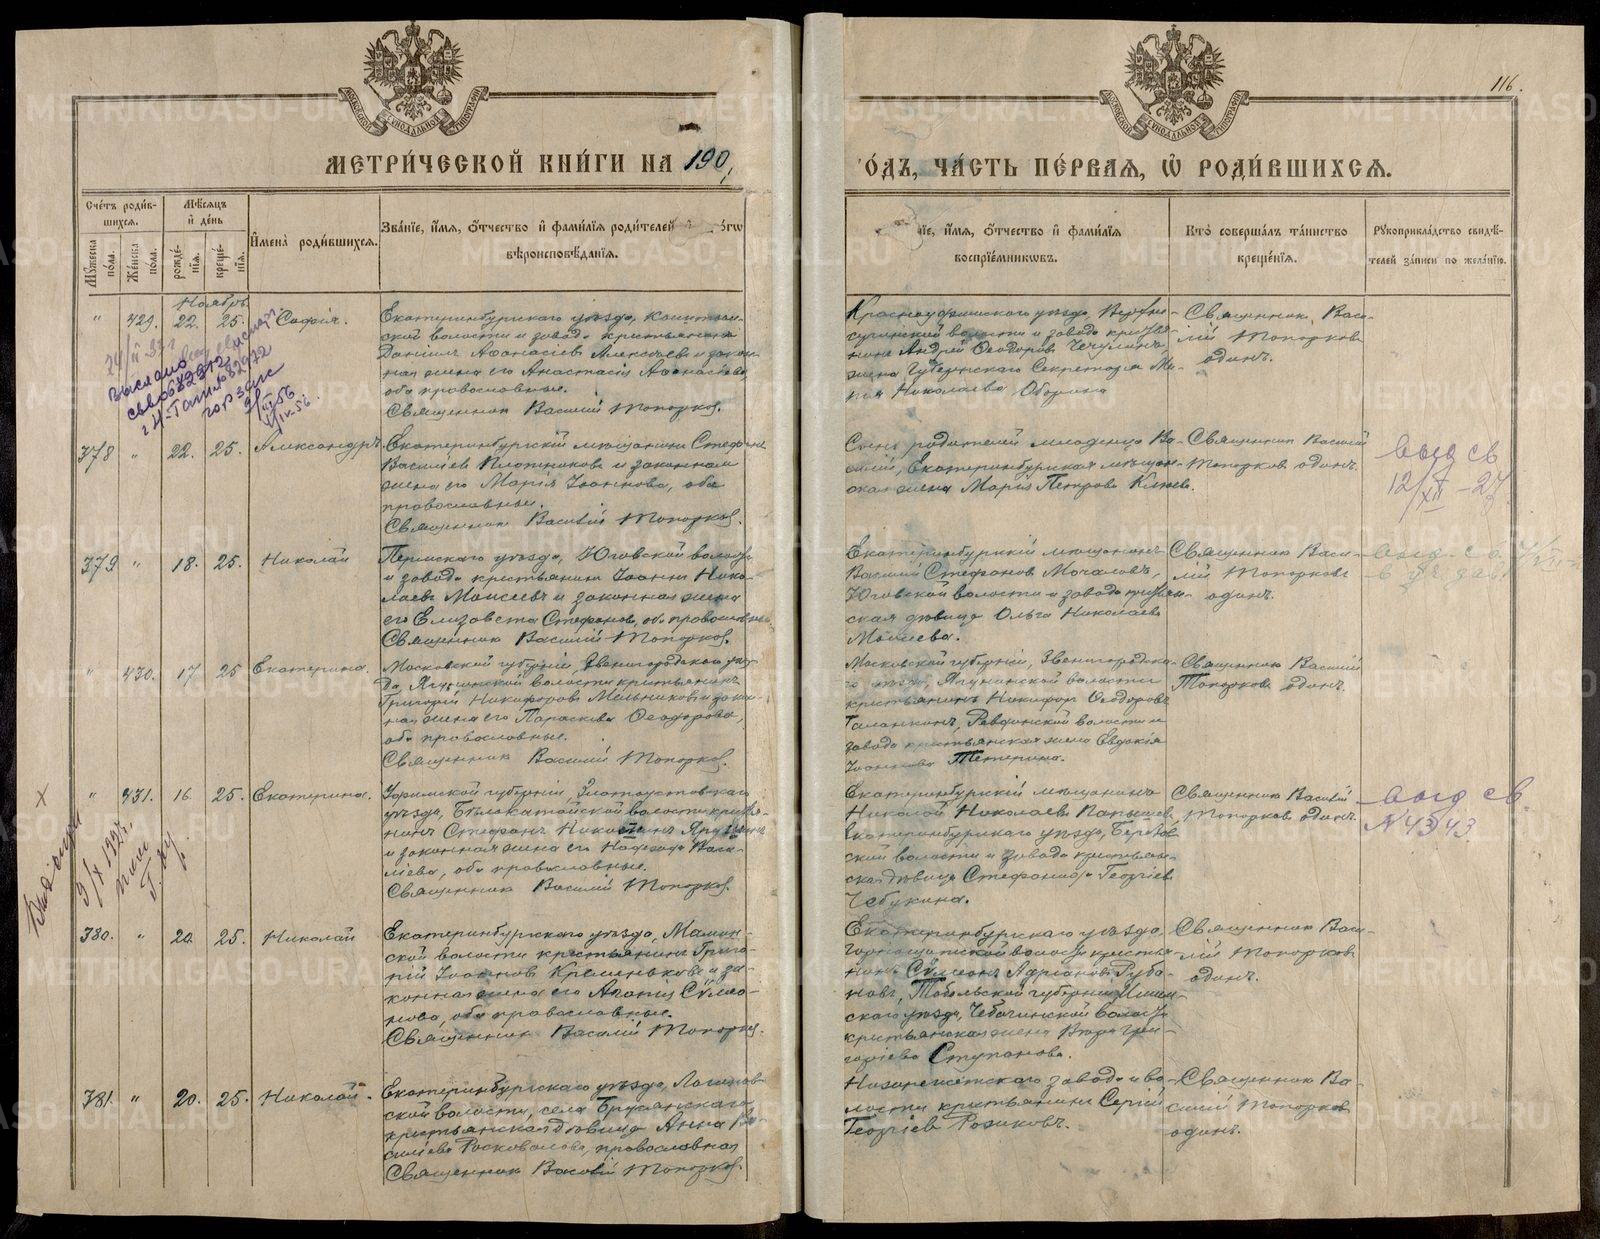 116.
МЕТРИ́ЧЕСКОЙ КНИ́ГИ НА 190
О́ДЪ, ЧА́СТЬ ПЕ́РВАѦ, Ѡ҆ РОДИ́ВШИХСѦ.
Сче́тъ роди́в-
шихсѧ.
Мꙋ́жеска по́ла.
Же́нска по́ла.
Мѣ́сѧцъ
и҆ де́нь
рожде́-
нїѧ.
креще́-
нїѧ.
И҆мена̀ роди́вшихсѧ.
Зва́нїе, и҆́мѧ, ѻ҆́тчество и҆ фами́лїѧ роди́телей
вѣроисповѣ́данїѧ.
їе, и҆́мѧ, ѻ҆́тчество и҆ фами́лїѧ
воспрїе́мникѡвъ.
Кто̀ соверша́лъ та́инство
креще́нїѧ.
Рꙋкоприкла́дство свидѣ́-
телей за́писи по жела́нїю.
Ноябрь
" 429. 22. 25. Софія.
Екатеринбургскаго уѣзда,
ской волости и завода крестьянинъ
Даніилъ Аѳанасіевъ Алексѣевъ и закон-
ная жена его Анастасія Аѳанасіева,
оба православные.
Священник Василій Топорков.
Красноуфимскаго уѣзда, Верхне-
сергинской волости и завода крестья-
нинъ Андрей Ѳеодоровъ Чечулинъ,
жена Губернскаго Секретаря Ма-
рія Николаева Оборина
Священникъ Васи-
лій Топорковъ
одинъ.
378 " 22. 25. Александръ.
Екатеринбургскій мѣщанинъ Стефанъ
Василіевъ Плотниковъ и законная
жена его Марія Іоаннова, оба
православные.
Священник Василій Топорков.
Сынъ родителей младенца Ва-
силій, Екатеринбургская мѣщан-
ская жена Марія Петрова Клюева.
Священник Василій
Топорков одинъ.
выд св
12/XII - 27
379 " 18. 25. Николай
Пермскаго уѣзда, Юговской волости
и завода крестьянинъ Іоаннъ Нико-
лаевъ Моисеевъ и законная жена
его Елизавета Стефанова, оба православные
Священник Василій Топорков.
Екатеринбургскій мѣщанинъ
Василій Стефановъ Мочаловъ,
Юговской волости и завода крестьян-
ская дѣвица Ольга Николаева
Моисеева.
Священникъ Васи-
лій Топорковъ
одинъ.
выд. св.
" 430. 17 25 Екатерина.
Московской губерніи, Звенигородскаго уѣз-
да, Ягунинской волости крестьянинъ
Григорій Никифоровъ Мельниковъ и закон-
ная жена его Параскева Ѳеодорова,
оба православные.
Священник Василій Топорков.
Московской губерніи, Звенигородска-
го уѣзда, Ягунинской волости
крестьянинъ Никифоръ Ѳеодоровъ
Галанкинъ, Ревдинской волости и
завода крестьянская жена Евдокія
Іоаннова Тетерина.
Священникъ Василій
Топорковъ одинъ.
" 431. 16. 25. Екатерина.
Уфимской губерніи, Златоустовскаго
уѣзда, Бѣлокатайской волости крестья-
нинъ Стефанъ Никитинъ
и законная жена его Надежда Васи-
ліева, оба православные.
Священник Василій Топорков.
Екатеринбургскій мѣщанинъ
Николай Николаевъ
Екатеринбургскаго уѣзда, Березов-
ской волости и завода крестьян-
ская дѣвица Стефанида Георгіева
Чебукина.
Священник Василій
Топорков одинъ.
выд св.
N 4343
380. " 20. 25. Николай
Екатеринбургскаго уѣзда, Мамин-
ской волости крестьянинъ Григо-
рій Іоанновъ Кремешковъ и за-
конная жена его Агапія Сѵмео-
нова, оба православные.
Священник Василій Топорков.
Екатеринбургскаго уѣзда,
Горнощитской волости крестья-
нинъ Сѵмеонъ Адріановъ Руба-
новъ, Тобольской губерніи Ишим-
скаго уѣзда, волости
крестьянская жена Вѣра Гри-
горіева Ступанова.
Священникъ Васи-
лій Топорковъ
одинъ.
381. " 20. 25. Николай.
Екатеринбургскаго уѣзда, Логинов-
ской волости, села Бруснянскаго
крестьянская дѣвица Анна Ва-
силіева Росковалова, православная
Священник Василій Топорков.
Назепетровскаго завода и во-
лости крестьянинъ Сергій
Георгіевъ Розиковъ.
Священник Ва-
силій Топорков
одинъ.